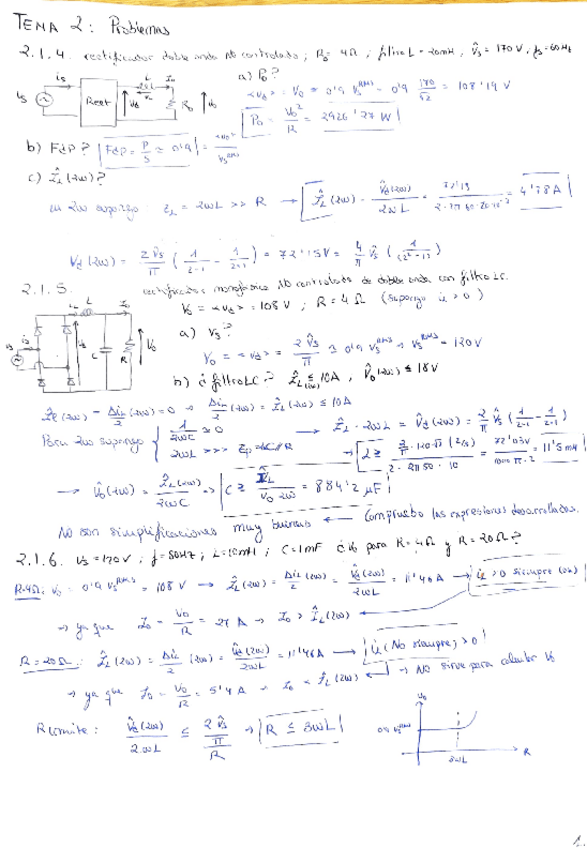 TEMA 2: Problemas
2.1.4. rectificador doble onda NO controlado; R₀ = 4Ω; filtro L = 20mH, V̂s = 170 V, fs = 60 Hz
a) P₀?
<vd> = V₀ = 0'9 Vs^RMS = 0'9 170/√2 = 108'19 V
is L I₀
vs Rect vd R₀ v₀
P₀ = V₀²/R = 2926'27 W
b) FdP? FdP = P/S ≈ 0'9 = <vd>/Vs^RMS
c) ÎL(2ω)?
en 2ω supongo ZL = 2ωL >> R → ÎL(2ω) = V̂d(2ω)/2ωL = 72'13/(2·2π·60·20·10⁻³) = 4'78A
Vd(2ω) = 2V̂s/π (1/(2-1) - 1/(2+1)) = 72'15V = 4/π V̂s (1/(2²-1))
2.1.5. rectificador monofásico NO controlado de doble onda con filtro LC.
V₀ = <vd> = 108 V; R = 4Ω (supongo iL > 0)
iL L I₀
vs is C R V₀
a) Vs?
V₀ = <vd> = 2V̂s/π ≈ 0'9 Vs^RMS → Vs^RMS = 120V
b) ¿filtro LC? ÎL(2ω) ≤ 10A, V̂₀(2ω) ≤ 18V
ÎC(2ω) = ΔiL/2 (2ω) = ÎL(2ω) ≤ 10A
Para 2ω supongo { 1/2ωC ≈ 0
2ωL >>> → ÎL · 2ωL = V̂d(2ω) = 2/π V̂s (1/(2-1) - 1/(2+1))
L ≥ 2/π·120·√2 (2/3) / 2·2π50·10 = 72'03V / 1000π·2 = 11'5 mH
→ V̂₀(2ω) = ÎL(2ω)/2ωC → C ≥ ÎL/V₀ 2ω = 884'2 μF
No son simplificaciones muy buenas ← Compruebo las expresiones desarrolladas.
2.1.6. Vs = 120V; f = 50Hz; L = 10mH; C = 1mF ¿V₀ para R = 4Ω y R = 20Ω?
R=4Ω: V₀ = 0'9 Vs^RMS = 108 V → ÎL(2ω) = ΔiL/2 (2ω) = V̂d(2ω)/2ωL = 11'46 A → iL > 0 siempre (ok)
→ ya que I₀ = V₀/R = 27 A → I₀ > ÎL(2ω)
R = 20Ω: ÎL(2ω) = ΔiL/2 (2ω) = V̂d(2ω)/2ωL = 11'46A → iL (No siempre) > 0
→ ya que I₀ = V₀/R = 5'4 A → I₀ < ÎL(2ω) → No sirve para calcular V₀
R límite: V̂d(2ω)/2ωL ≤ (2V̂s/π)/R → R ≤ 3ωL
V₀
0'9 Vs^RMS
3ωL
R